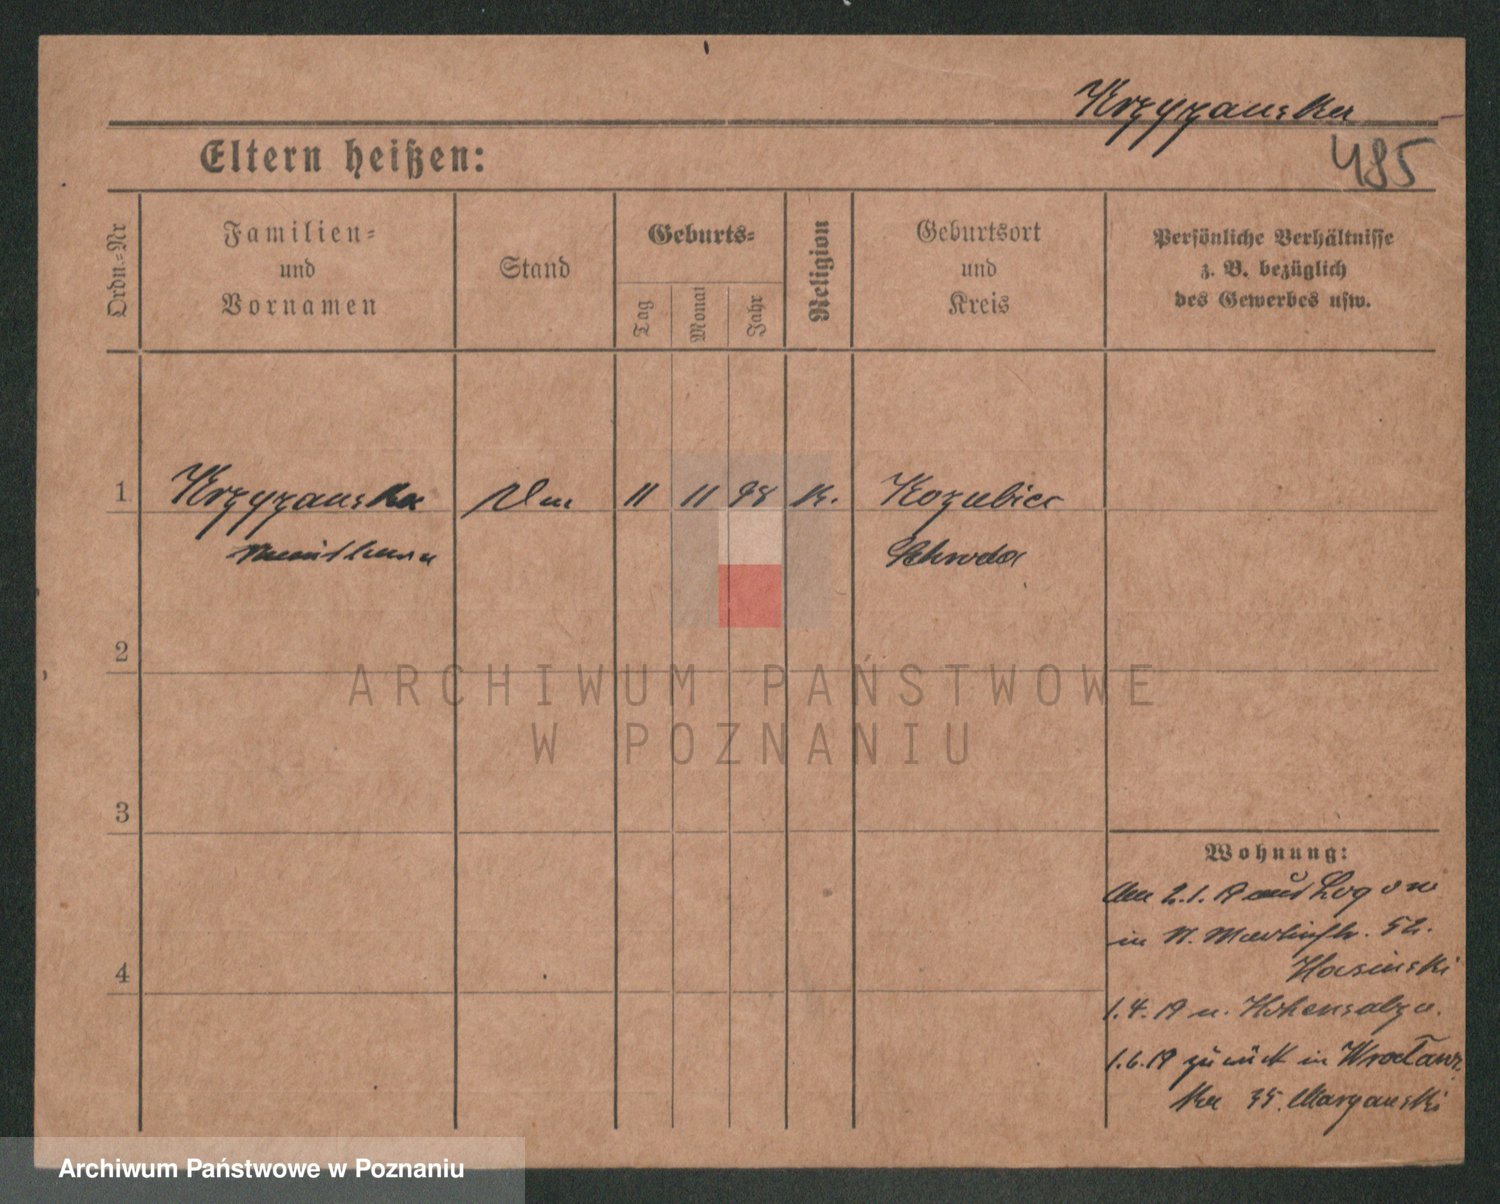 Krzyzanska
485
Eltern heißen:
Ordn.-Nr
Familien-
und
Vornamen
Stand
Geburts-
Tag
Monat
Jahr
Religion
Geburtsort
und
Kreis
Persönliche Verhältnisse
z. B. bezüglich
des Gewerbes usw.
1 Krzyzanska 11 11 98 K.
Schroda
2
3
4
Wohnung:
2.1.19 aus
in St. Martinstr. 52.
Hasinski
1.4.19 n. Hohensalza.
1.6.19 zurück in Wrocław
ska 35. Marganski
ARCHIWUM PAŃSTWOWE
W POZNANIU
Archiwum Państwowe w Poznaniu